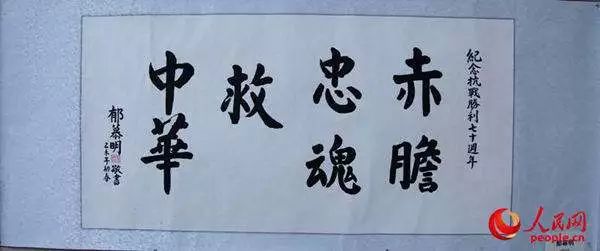 紀念抗戰勝利七十週年
赤膽
忠魂
救
中華
郁慕明敬書
乙未年初春
人民网
people.cn